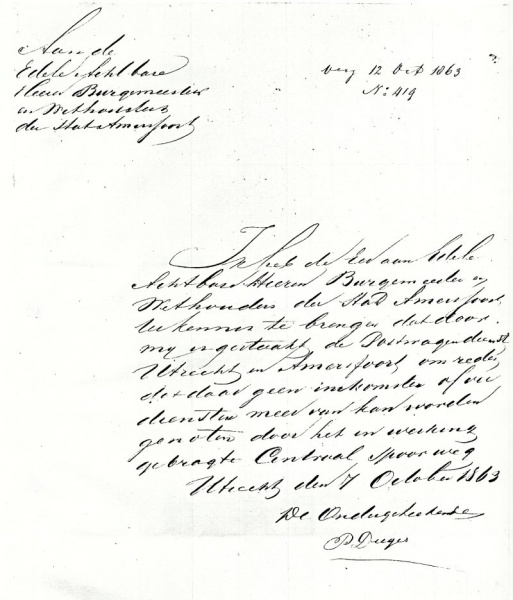 Aan de
Edele Achtbare
Heeren Burgemeester
en Wethouders
der Stat Amersfoort
12 Oct 1863
No: 419
Ik heb de Eer aan Edele
Achtbare Heeren Burgemeester en
Wethouders der Stad Amersfoort
ter kennis te brengen dat door
my is gestaakt de Postwagendienst
Utrecht en Amersfoort om reden
dat daar geen inkomsten of ver
diensten meer van kan worden
genoten door het in werking
gebragte Centraal Spoorweg
Utrecht den 7 October 1863
De Ondergeteekende